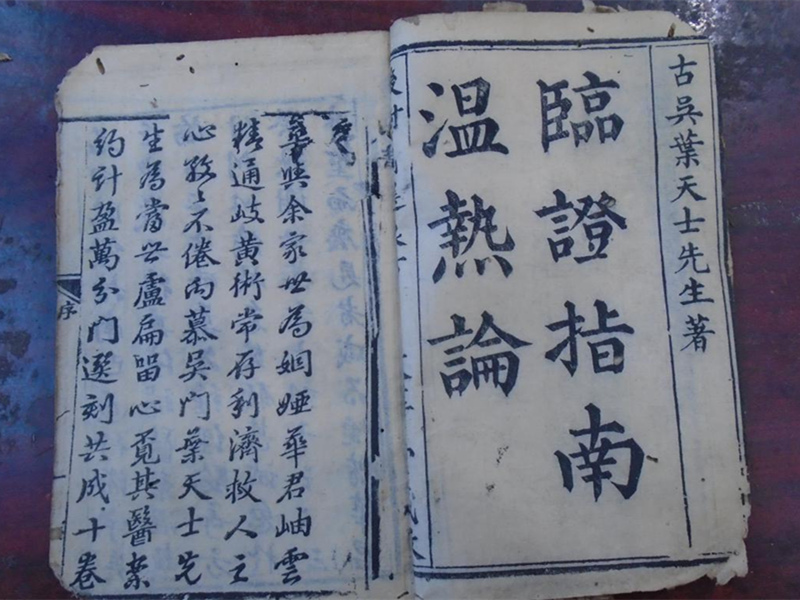 古吳葉天士先生著
臨證指南
温熱論
序
華與余家世為姻婭華君岫雲
精通岐黃術常存利濟救人之
心孜〻不倦而慕吳門葉天士先
生為當世盧扁留心覓其醫案
約計盈萬分門選刻共成十卷
序